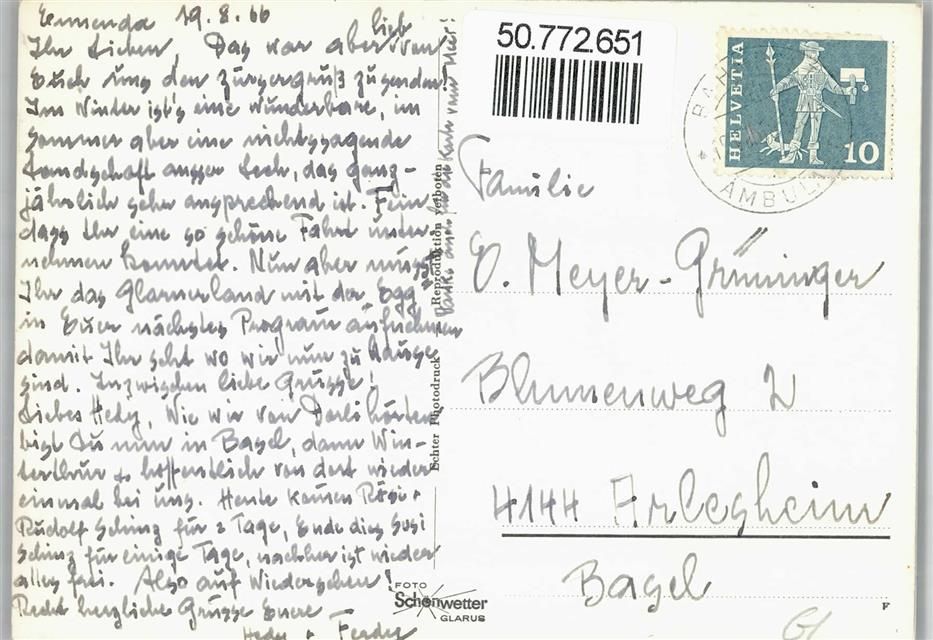 Ennenda 19.8.66
Ihr Lieben, Das war aber lieb von
Euch uns den Zürgergruß zu senden!
Im Winter ist's eine wunderbare, im
Sommer aber eine nichtssagende
Landschaft ausser Lech, das ganz-
jährlich sehr ansprechend ist. Fein
dass Ihr eine so schöne Fahrt unter-
nehmen konntet. Nun aber müsst
Ihr das Glarnerland mit der "Egg"
in Euer nächstes Program aufnehmen
damit Ihr seht wo wir nun zu Hause
sind. Inzwischen liebe Grüsse!
Liebes Hedy, Wie wir von Dorli hörten
bist Du nun in Basel, dann Win-
terthur + hoffentlich von dort wieder
einmal bei uns. Heute kamen Rösi +
Rudolf Schinz für 2 Tage, Ende dies Susi
Schinz für einige Tage, nachher ist wieder
alles frei. Also auf Wiedersehen!
Recht herzliche Grüsse Euere
Hedy + Ferdy
Danke auch für die Karte vom Meer!
Echter Photodruck - Reproduktion verboten
50.772.651
HELVETIA
10
AMBULANT
Familie
E. Meyer-Grüninger
Blumenweg 2
4144 Arlesheim
Basel
FOTO
Schönwetter
GLARUS
F